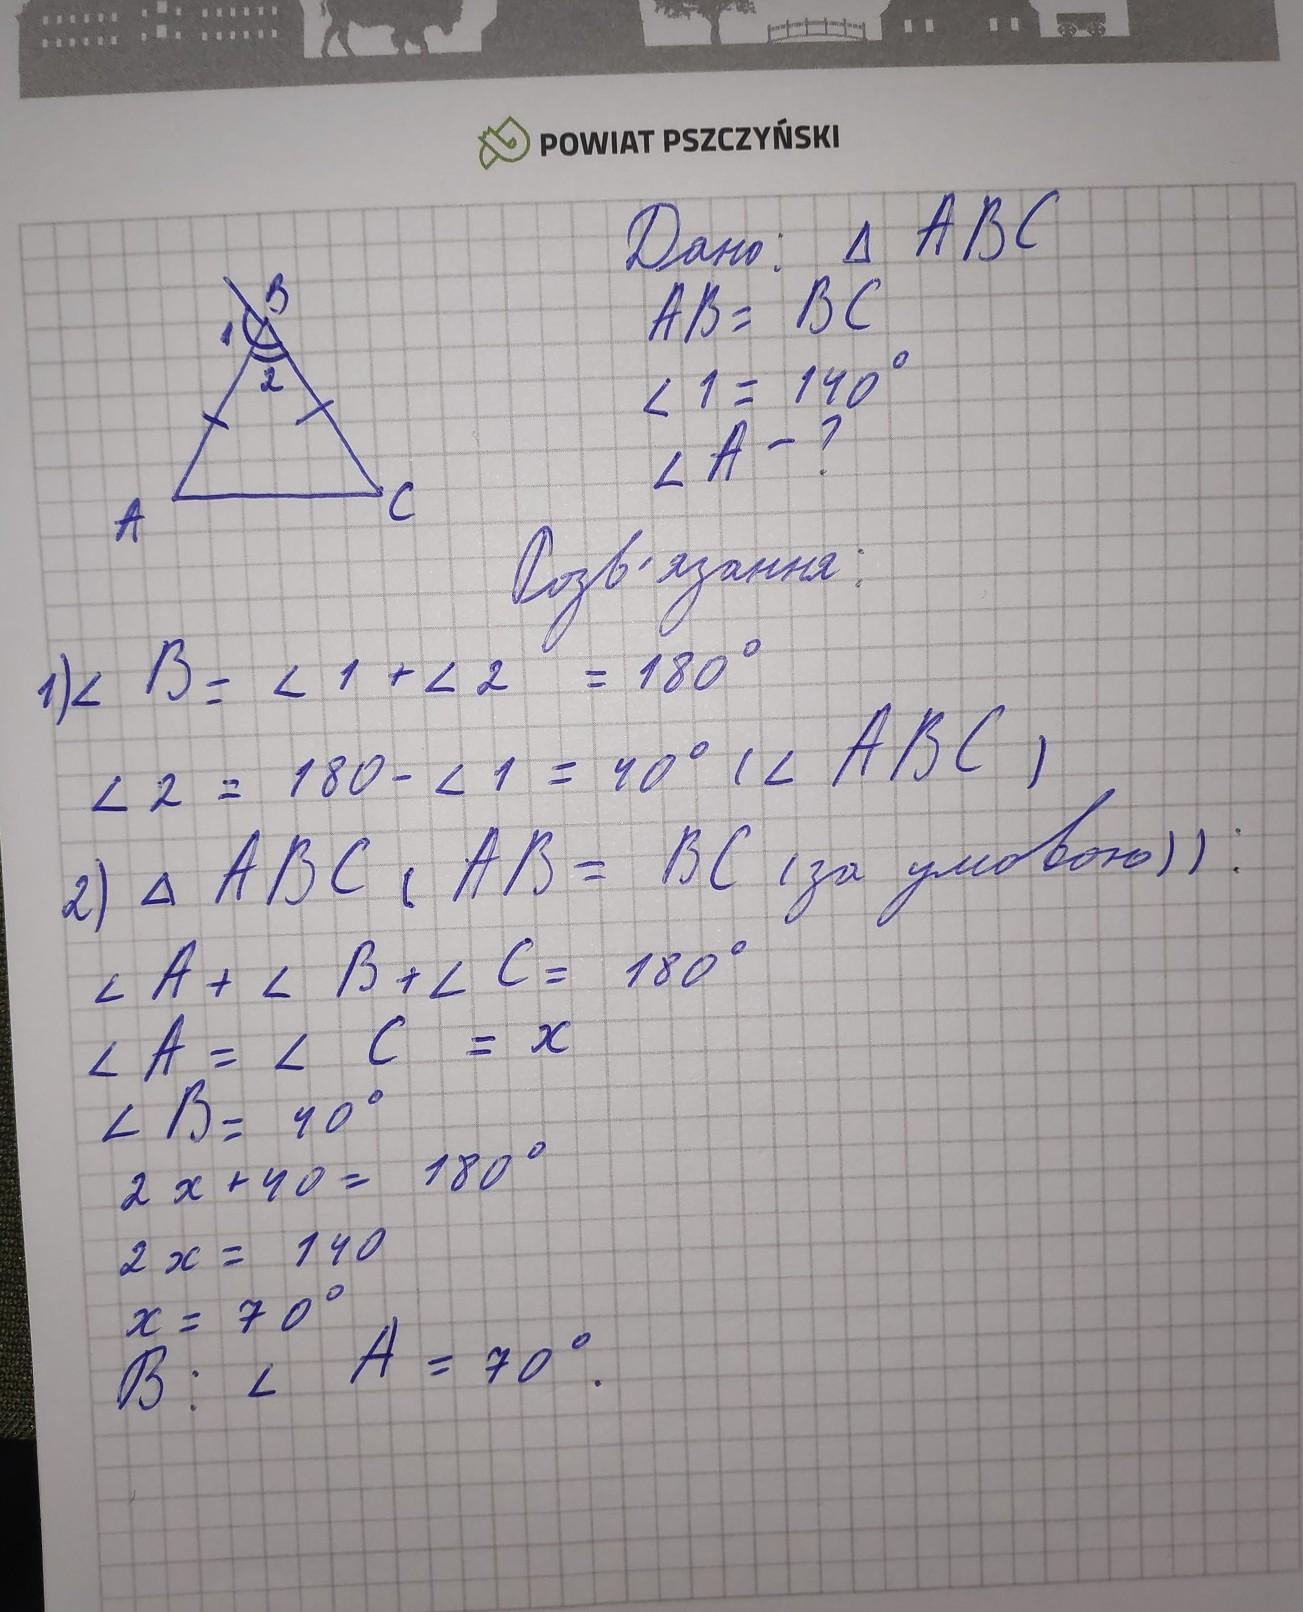 POWIAT PSZCZYŃSKI
Дано: Δ ABC
AB = BC
∠1 = 140°
∠A - ?
B
1
2
A
C
Розв'язання:
1) ∠B = ∠1 + ∠2 = 180°
∠2 = 180 - ∠1 = 40° (∠ABC)
2) Δ ABC (AB = BC (за умовою)):
∠A + ∠B + ∠C = 180°
∠A = ∠C = x
∠B = 40°
2x + 40 = 180°
2x = 140
x = 70°
В: ∠A = 70°.